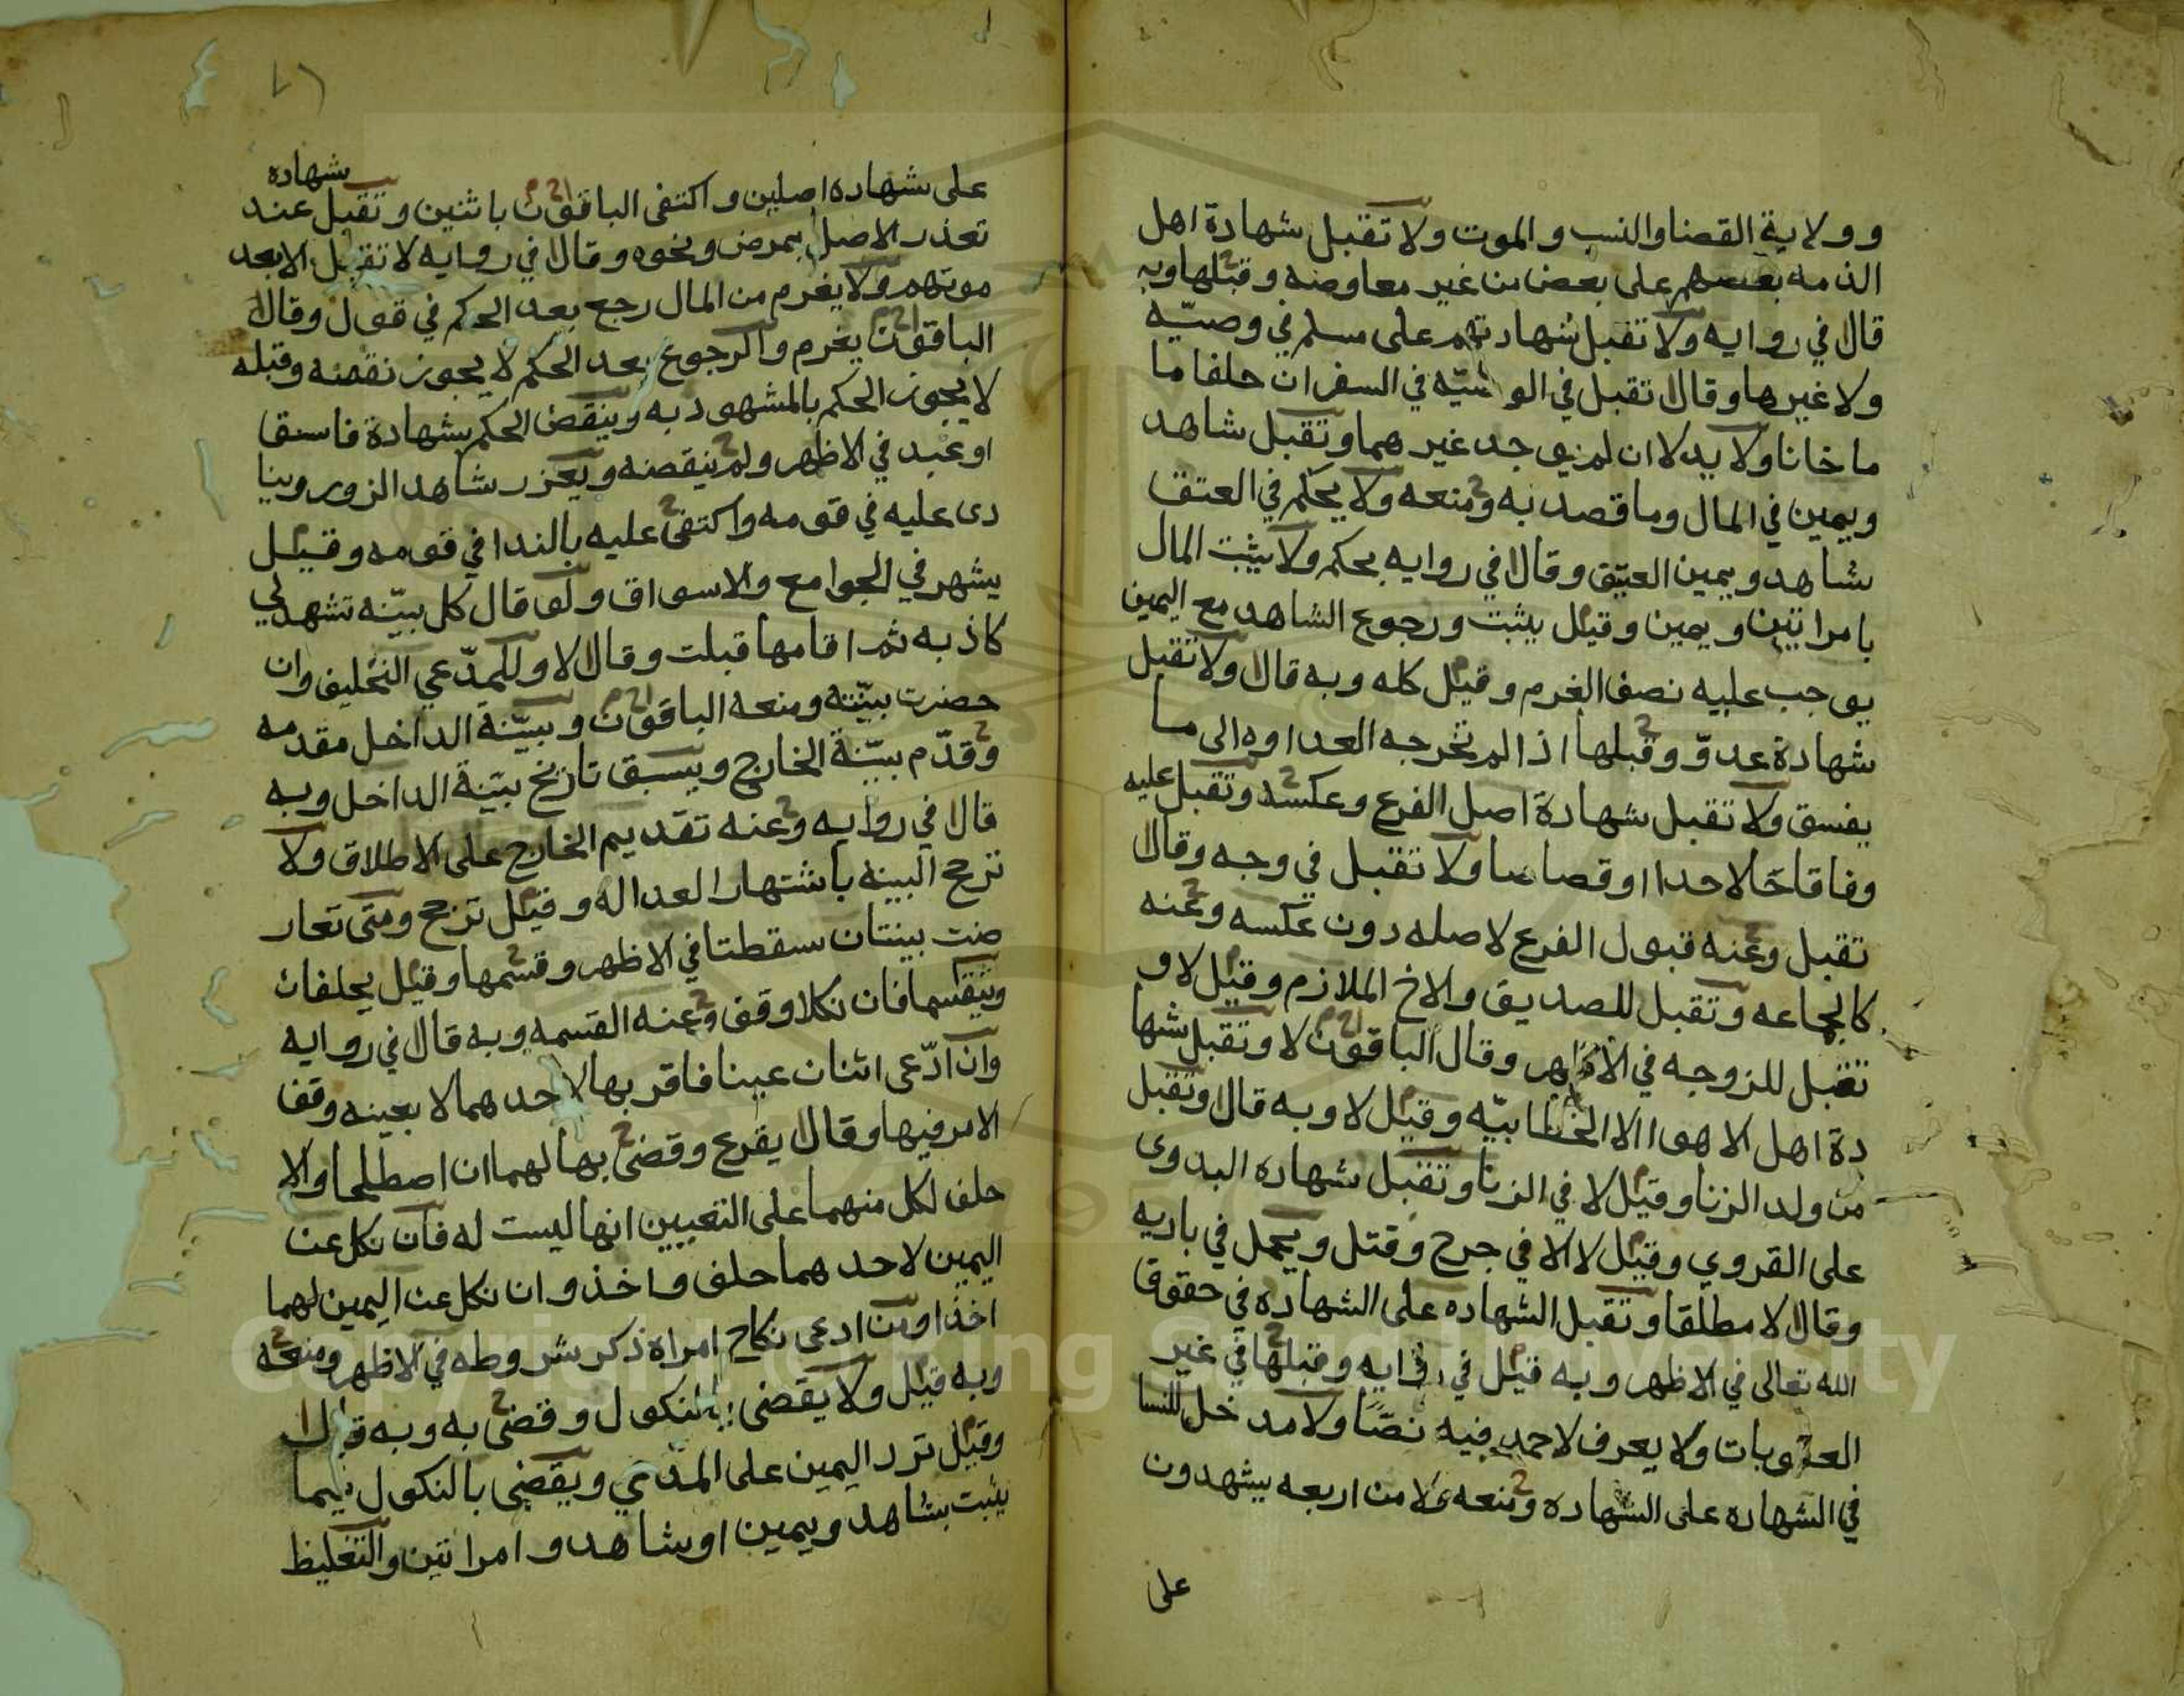 وولاية القضا والنسب والموت ولا تقبل شهادة اهل
الذمه بعضهم على بعض من غير معاوضه وقبلها وبه
قال في روايه ولا تقبل شهادتهم على مسلم في وصيّه
ولا غيرها وقال تقبل في الوصيّه في السفر ان حلفا ما
ما خانا ولا بدلا ان لم يوجد غيرهما وتقبل شاهد
ويمين في المال وما قصد به ومنعه ولا يحكم في العتق
بشاهد ويمين العتيق وقال في روايه يحكم ولا يثبت المال
بامراتين ويمين وقيل يثبت ورجوع الشاهد مع اليمين
يوجب عليه نصف الغرم وقيل كله وبه قال ولا تقبل
شهادة عدوّ وقبلها اذا لم تخرجه العداوه الى ما
يفسق ولا تقبل شهادة اصل الفرع وعكسه وتقبل عليه
وفاقا حتا لا حدا او قصاصا ولا تقبل في وجه وقال
تقبل وعنه قبول الفرع لاصله دون عكسه وعنه
كالجماعه وتقبل للصديق والاخ الملازم وقيل لا و
تقبل للزوجه في الاظهر وقال الباقون لا وتقبل شها
دة اهل الاهوا الا الخطابيّه وقيل لا وبه قال وتقبل
من ولد الزنا وقيل لا في الزنا وتقبل شهاده البدوى
على القروي وقيل لا الا في جرح وقتل ويحمل في باديه
وقال لا مطلقا وتقبل الشهاده على الشهاده في حقوق
الله تعالى في الاظهر وبه قيل في روايه وقبلها في غير
العقوبات ولا يعرف لاحمد فيه نصّا ولا مدخل للنسا
في الشهاده على الشهاده ومنعه الا من اربعه يشهدون
على
شهاده
على شهاده اصلين واكتفى الباقون باثنين وتقبل عند
تعذر الاصل بمرض ونحوه وقال في روايه لا تقبل الا بعد
موتهم ولا يغرم من المال رجع بعد الحكم في قول وقال
الباقون يغرم والرجوع بعد الحكم لا يجوز نقضه وقبله
لا يجوز الحكم بالمشهود به وينقض الحكم بشهادة فاسق
او عبد في الاظهر ولم ينقضه ويعزر شاهد الزور وينا
دى عليه في قومه واكتفى عليه بالندا في قومه وقيل
يشهر في الجوامع والاسواق ولو قال كل بيّنه تشهد لي
كاذبه ثم اقامها قبلت وقال لا وللمدّعي التحليف وان
حضرت بيّنته ومنعه الباقون وبيّنة الداخل مقدمه
وقدّم بيّنة الخارج ويسبق تاريخ بيّنة الداخل وبه
قال في روايه وعنه تقديم الخارج على الاطلاق ولا
ترجح البينه باشتهار العداله وقيل ترجح ومتى تعار
ضت بينتان سقطتا في الاظهر وقسمها وقيل يحلفان
ويقتسما فان نكلا وقف وعنه القسمه وبه قال في روايه
وان ادّعى اثنان عينا فاقر بها لاحدهما لا بعينه وقف
الامر فيها وقال يقرع وقضى بها لهما ان اصطلحا والا
حلف لكل منهما على التعيين انها ليست له فان نكل عن
اليمين لاحدهما حلف واخذ وان نكل عن اليمين لهما
اخذا ومن ادعى نكاح امراه ذكر شروطه في الاظهر ومنعه
وبه قيل ولا يقضى بالنكول وقضى به وبه قال
وقيل ترد اليمين على المدّعي ويقضى بالنكول فيما
يثبت بشاهد ويمين او شاهد وامراتين والتغليظ
Copyright © King Saud University